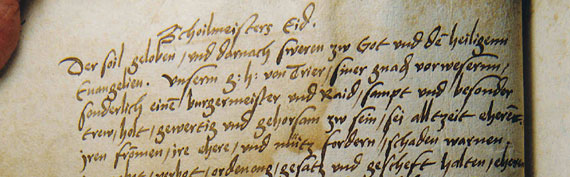 Scholmeisters Eid.
Der soil geloben / und darnach sweren zw Got und dē heiligenn
Euangelien. Unserm g: h: von Trier / siner gnadē vorweserнn /
sonderlich einē burgermeister und Raid / sampt und besonder
trew / holt / gewertig und gehorsam zw sein / sei altzeit eherenn
iren fromen / ire ehere / und nuitz fordern / schaden warnen /
verbot / ordenong / gesatz und gescheft halten /